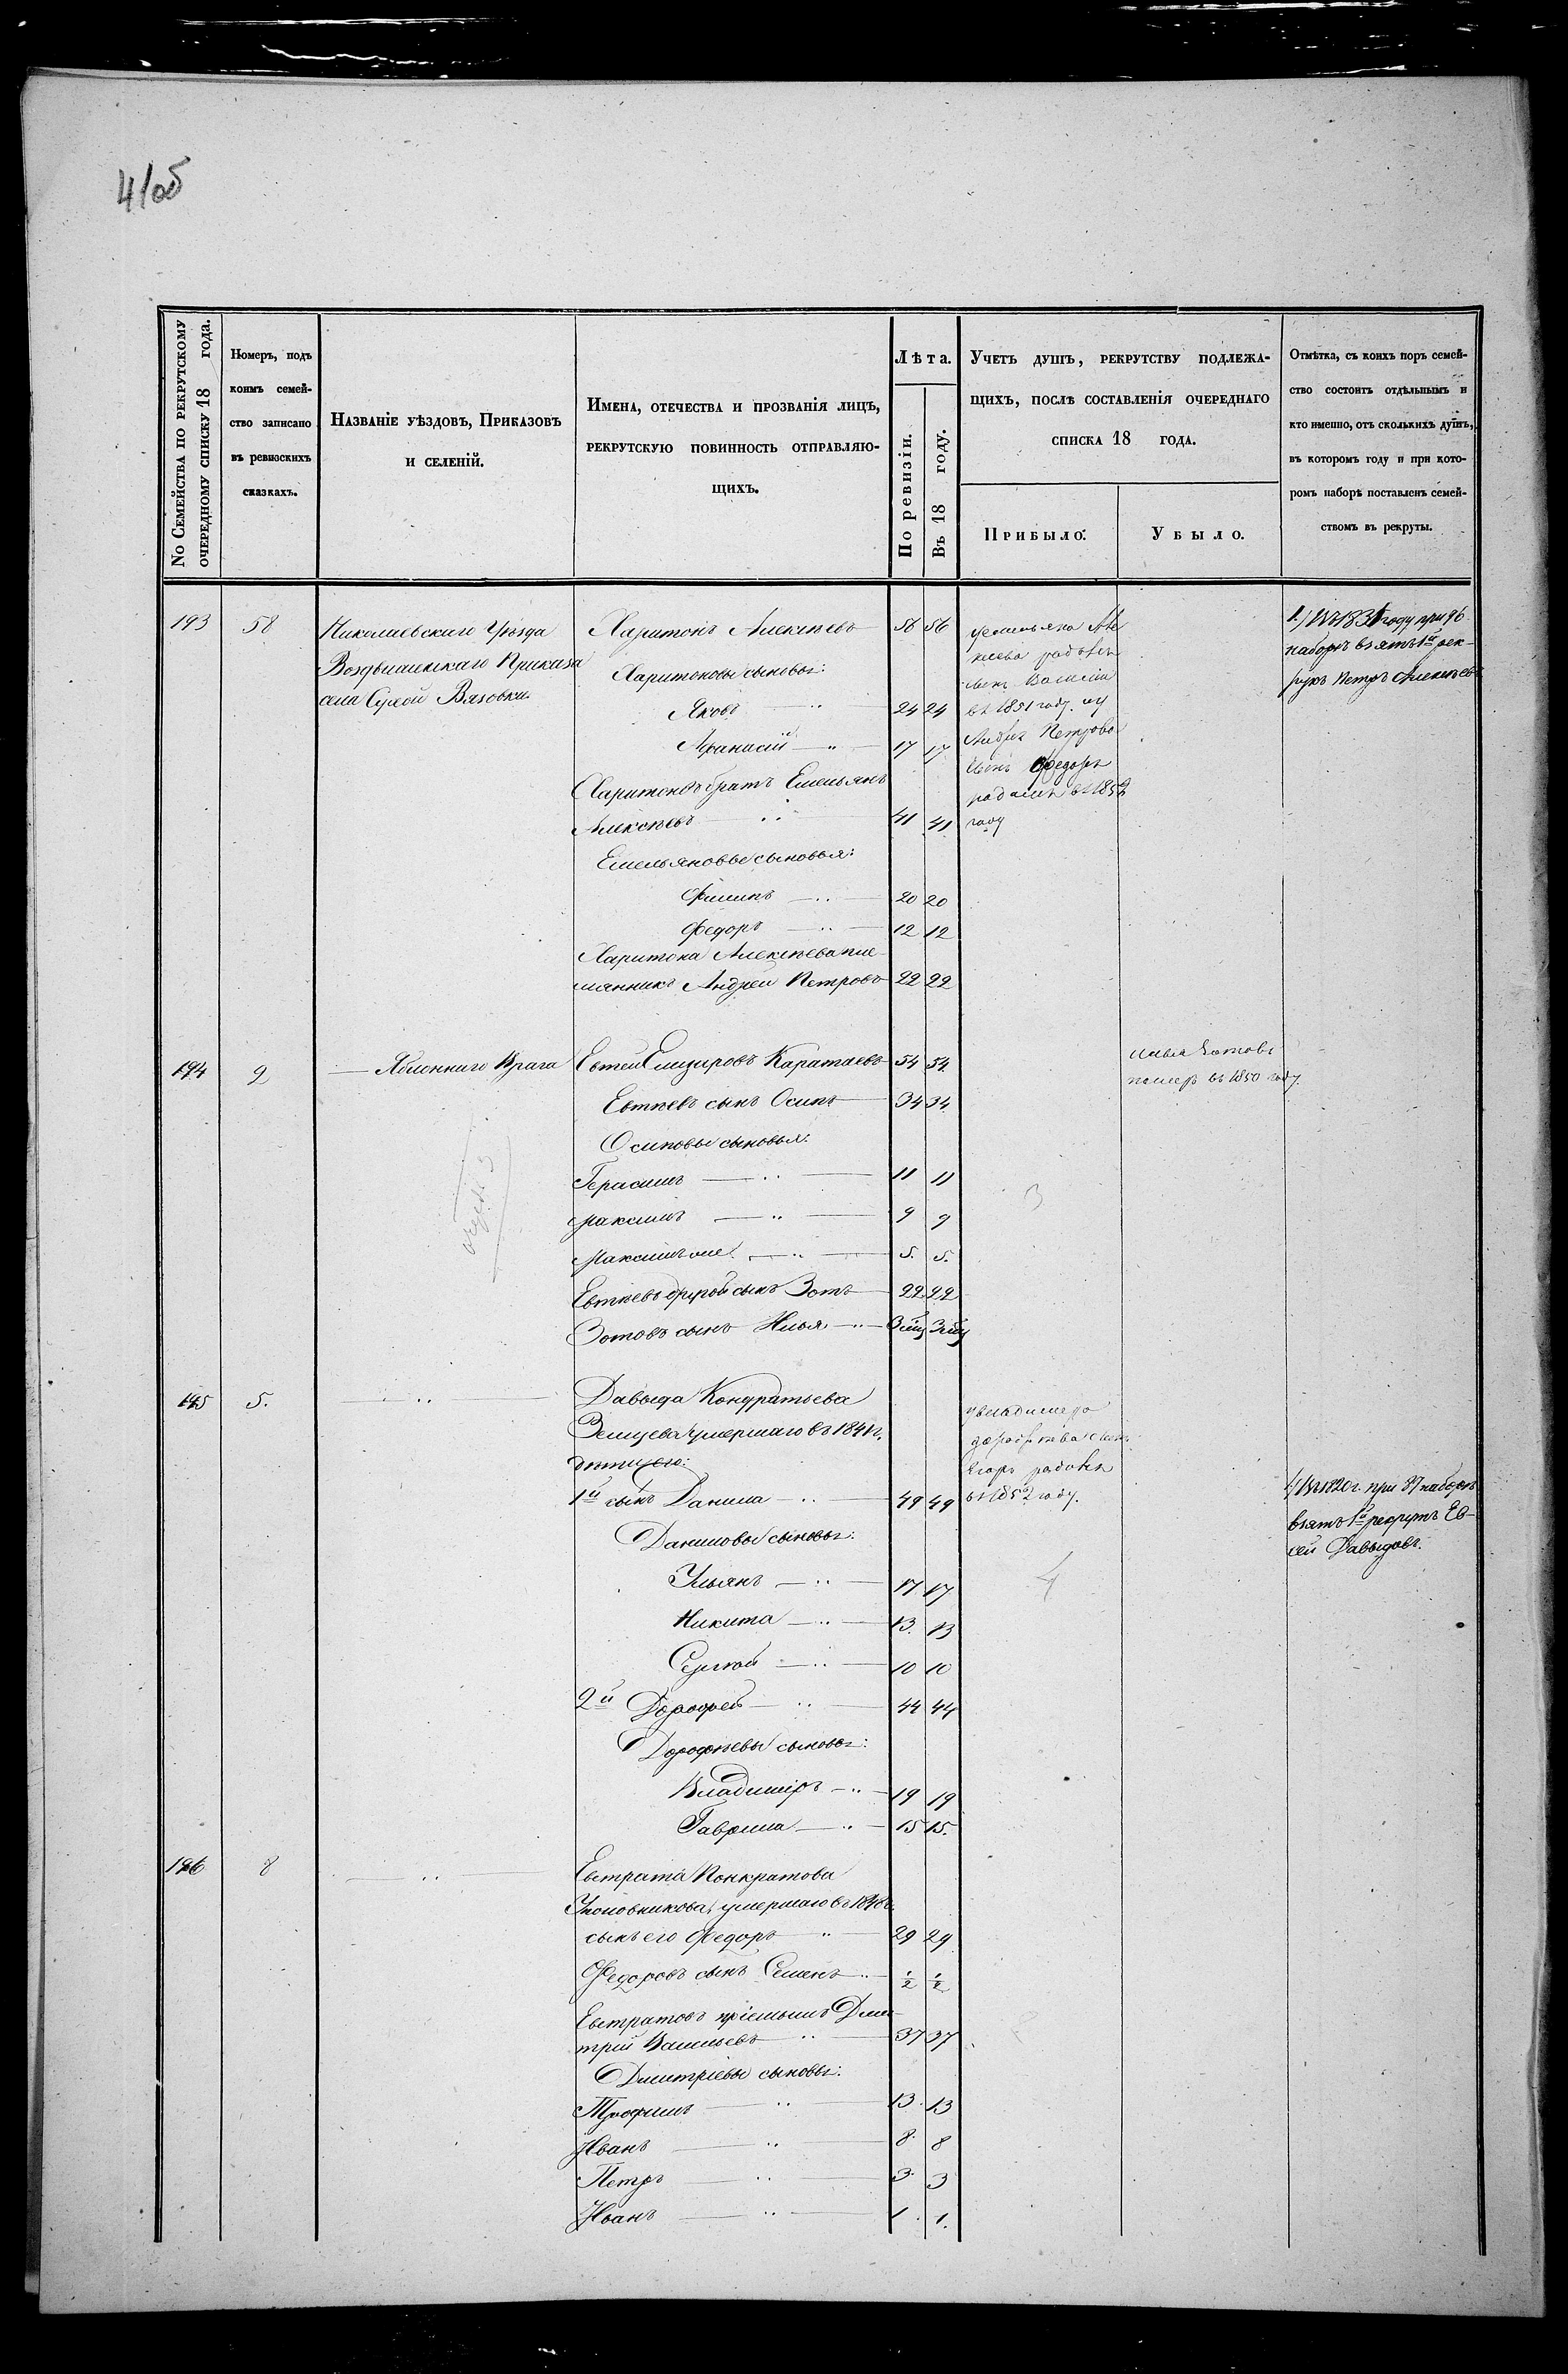 41об
№ Семейства по рекрутскому очередному списку 18 года.
Номеръ, подъ коимъ семейство записано въ ревизскихъ сказкахъ.
Названіе уѣздовъ, Приказовъ и селеній.
Имена, отечества и прозванія лицъ, рекрутскую повинность отправляющихъ.
Лѣта.
По ревизіи.
Въ 18 году.
Учетъ душъ, рекрутству подлежащихъ, послѣ составленія очереднаго списка 18 года.
Прибыло.
Убыло.
Отмѣтка, съ коихъ поръ семейство состоитъ отдѣльнымъ и кто именно, отъ сколькихъ душъ, въ которомъ году и при которомъ наборѣ поставленъ семействомъ въ рекруты.
193 58 Николаевскаго Уѣзда
Воздвиженскаго Приказа
села Сухой Вязовки
Харитонъ Алексѣевъ 56 56
Харитоновы сыновья:
Яковъ 24 24
Афанасій 17 17
Харитоновъ братъ Емельянъ
Алексѣевъ 41 41
Емельяновы сыновья:
Филипъ 20 20
Федоръ 12 12
Харитона Алексѣева пле-
мянникъ Андрей Петровъ 22 22
у Емельяна Але
ксѣева родился
сынъ Василій
въ 1851 году. и у
Андрея Петрова
сынъ Федоръ
родился въ 1852
году
1.) Въ 1831 году при 96
наборѣ взятъ 1й рек-
рутъ Петръ Алексѣевъ
194 9 Яблоннаго Врага
Евтей Елизаровъ Каратаевъ 54 54
Евтѣевъ сынъ Осипъ 34 34
Осиповы сыновья:
Герасимъ 11 11
Максимъ 9 9
Максимъ же 5. 5.
Евтѣевъ другой сынъ Зотъ 22 22
Зотовъ сынъ Илья
Илья Зотовъ
померъ въ 1850 году.
3
195 5.
Давыда Кондратьева
умершаго въ 1841 г.
дѣти его:
1й сынъ Данила 49 49
Даниловы сыновья:
Ульянъ 17 17
Никита 13. 13
Сергѣй 10 10
2й Дорофей 44 44
Дорофѣевы сыновья:
Владиміръ 19 19
Гаврила 15 15.
у Владимера
Дорофѣева сынъ
Егоръ родился
въ 1852 году.
4
1) Въ 1820 г. при 87 наборѣ
взятъ 1й рекрутъ Ев-
сей Давыдовъ.
196 8
Евтрата Понкратова
умершаго въ
сынъ его Федоръ 29 29
Федоровъ сынъ Семенъ 1/2 1/2
Евтратовъ пріемышъ Дми-
трій Васильевъ 37 37
Дмитріевы сыновья:
Трофимъ 13. 13
Иванъ 8. 8
Петръ 3. 3
Иванъ 1. 1.